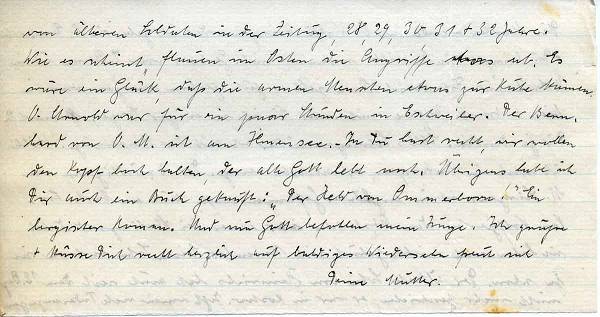 von älteren Soldaten in der Zeitung, 28, 29, 30 31 + 32 Jahre.
Wie es scheint, flauen im Osten die Angriffe etwas ab. Es
wäre ein Glück, daß die armen Menschen etwas zur Ruhe kämen.
O. Arnold war für ein paar Stunden in Eschweiler. Der Bern-
hard von O. M. ist am Ilmensee. Ja Du hast recht, wir wollen
den Kopf hoch halten, der alte Gott lebt noch. Übrigens habe ich
Dir auch ein Buch gekauft: „Der Held von Ommerborn!" Ein
bergischer Roman. Und nun Gott befohlen mein Junge. Ich grüße
+ küsse Dich recht herzlich auf baldiges Wiedersehn freut sich
Deine Mutter.